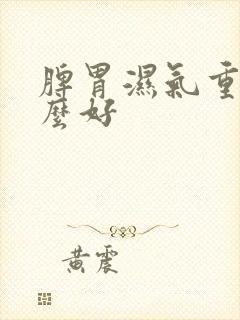 脾胃濕氣重
麼好
黃震